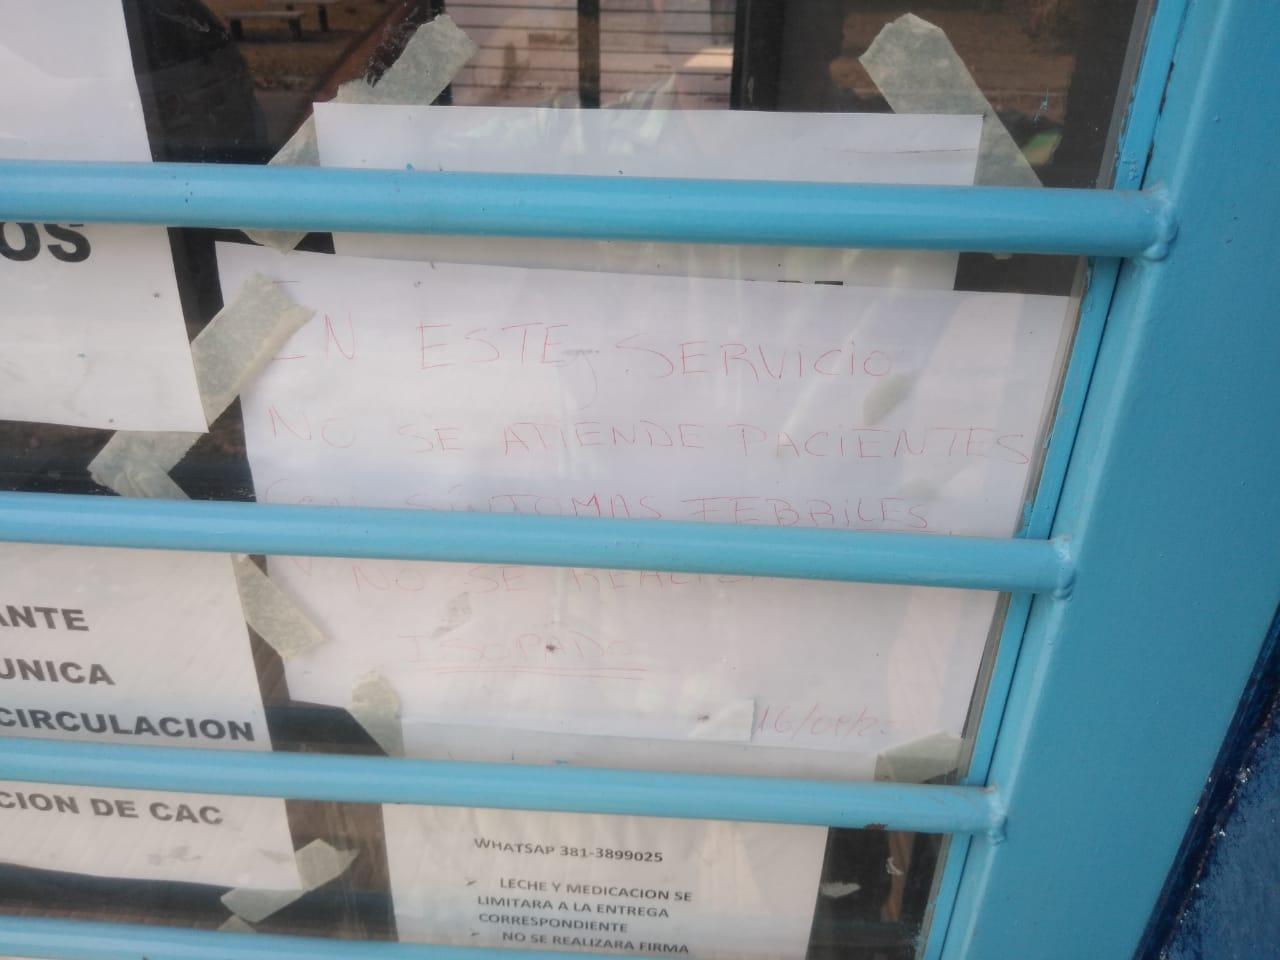 OS
EN ESTE SERVICIO
NO SE ATIENDE PACIENTES
CON SÍNTOMAS FEBRILES
Y NO SE REALIZA
ISOPADO
ANTE
UNICA
CIRCULACION
CION DE CAC
WHATSAP 381-3899025
LECHE Y MEDICACION SE
LIMITARA A LA ENTREGA
CORRESPONDIENTE
NO SE REALIZARA FIRMA